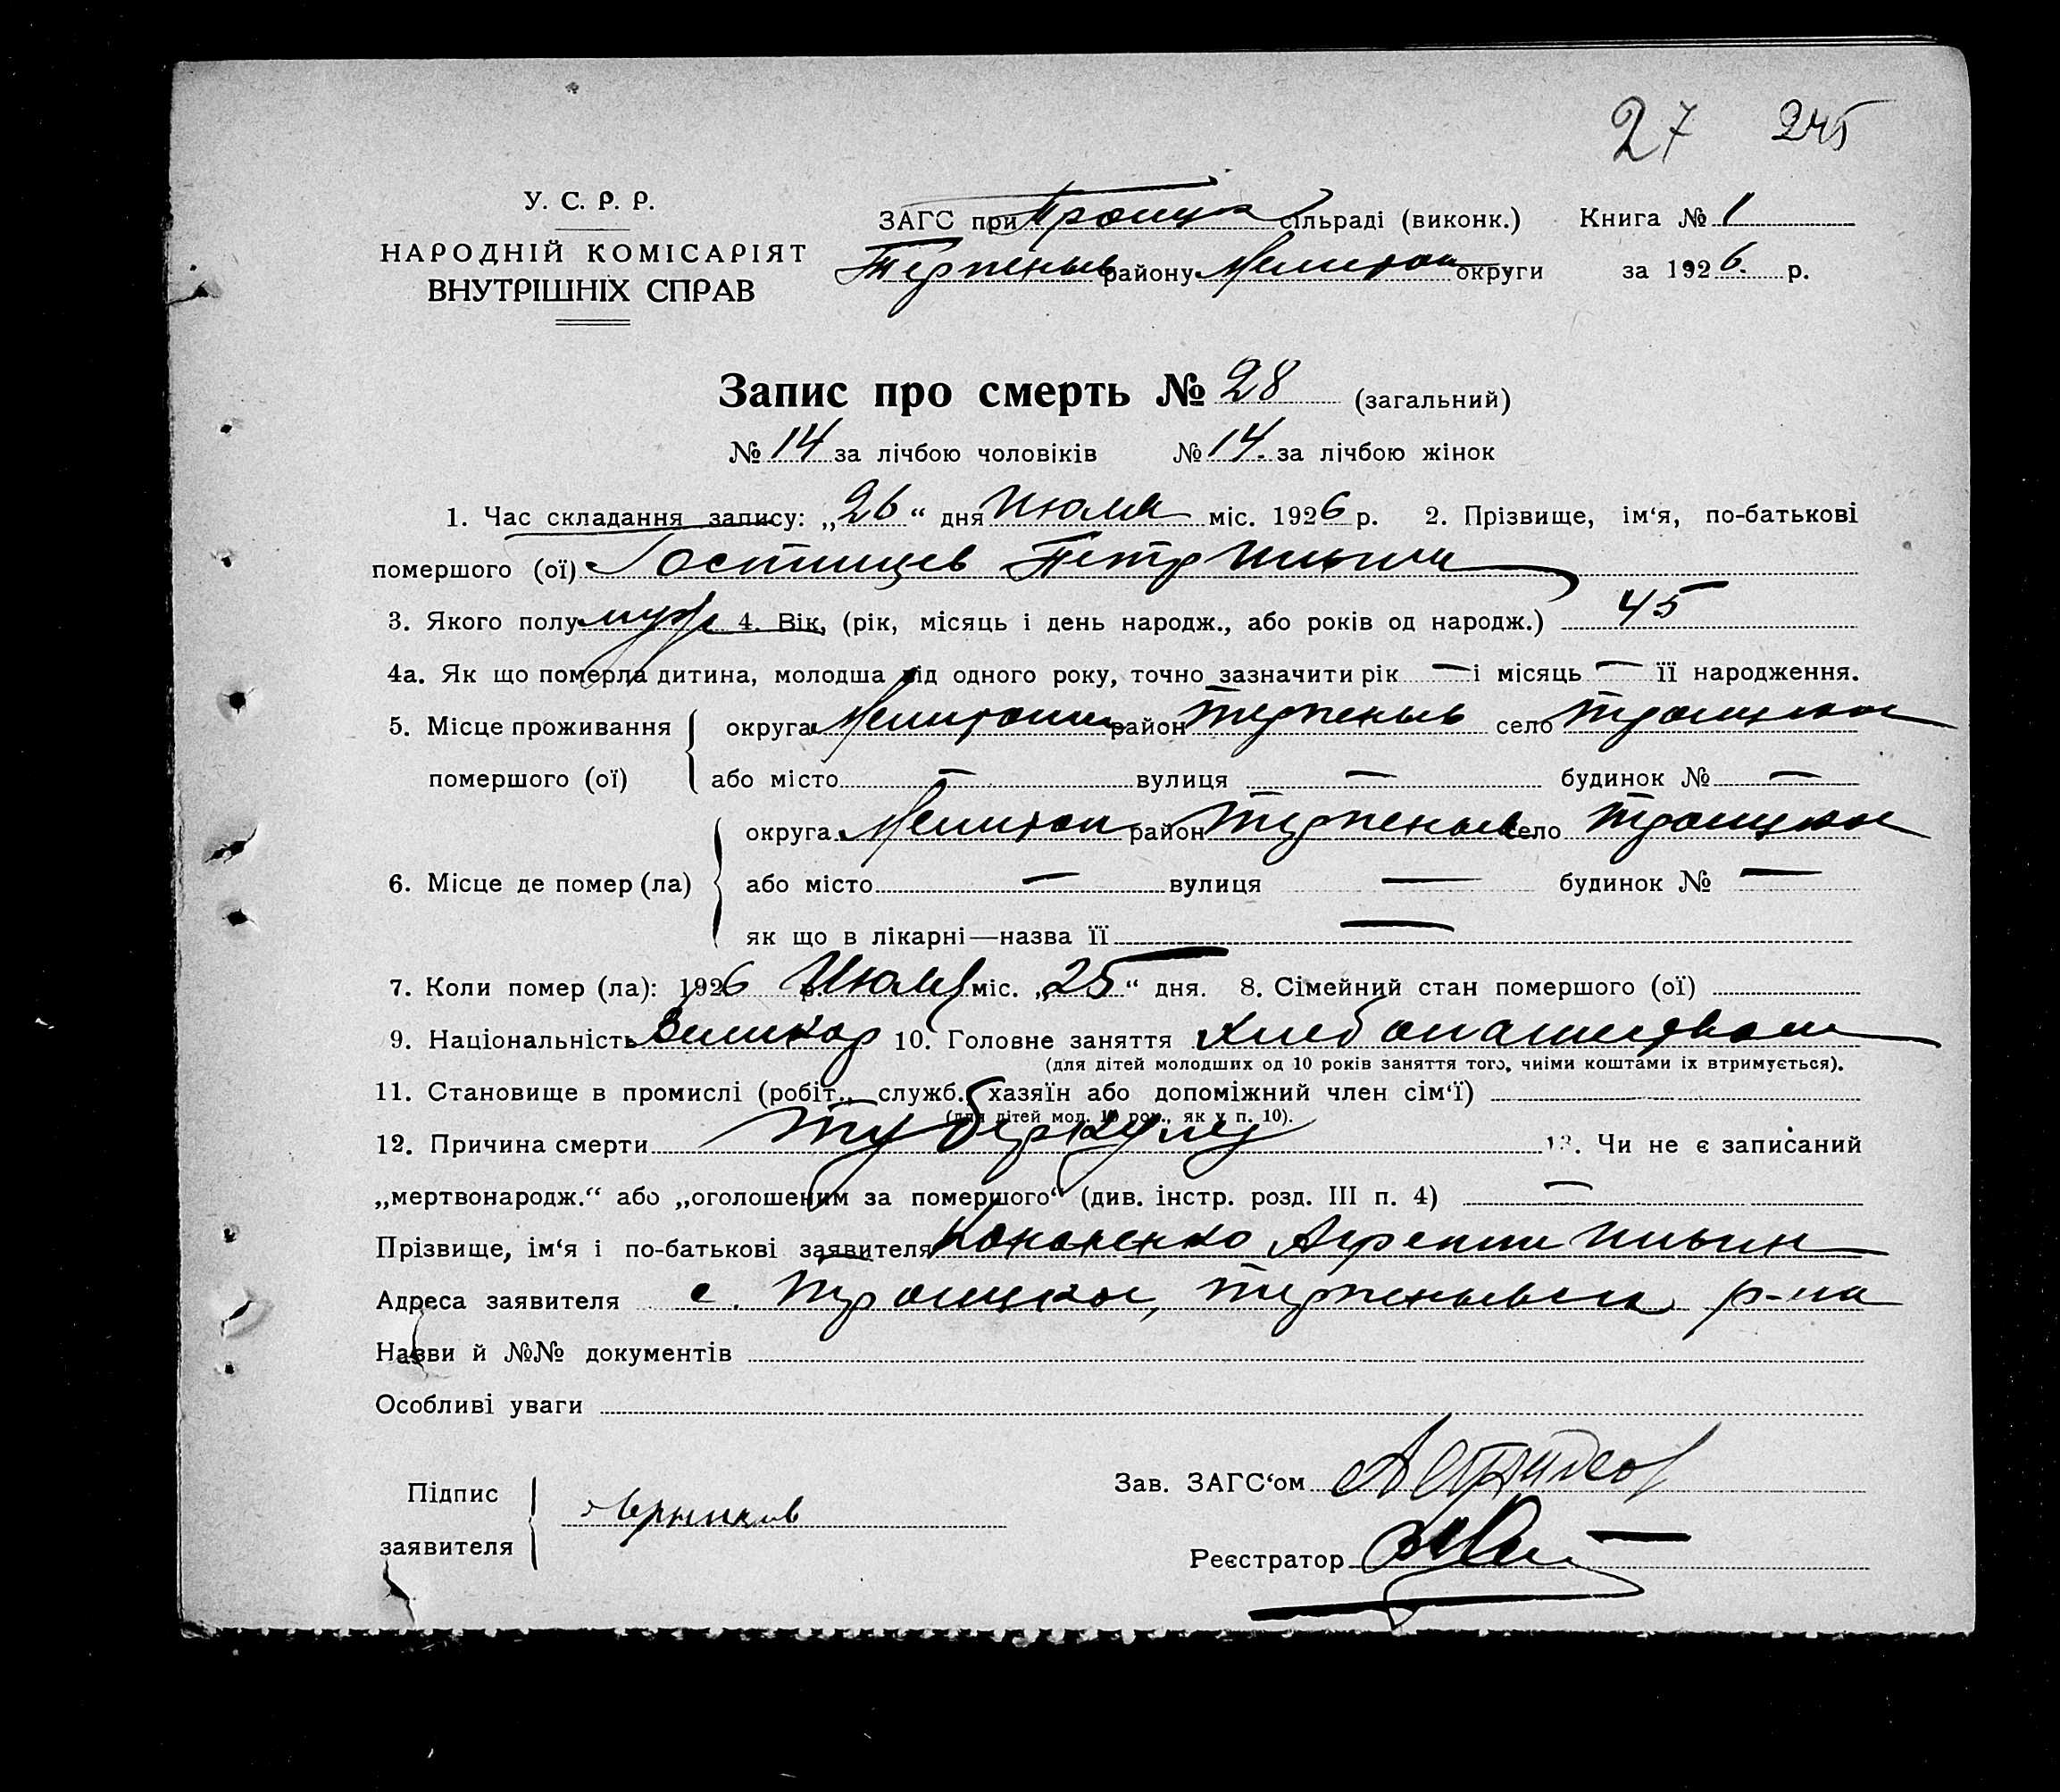 27 245
У. С. Р. Р.
НАРОДНІЙ КОМІСАРІЯТ
ВНУТРІШНІХ СПРАВ
ЗАГС при Троицк сільраді (виконк.) Книга № 1
Терпеньев району Мелитоп округи за 1926 р.
Запис про смерть № 28 (загальний)
№ 14 за лічбою чоловіків № 14 за лічбою жінок
1. Час складання запису: „26“ дня Июля міс. 1926 р. 2. Прізвище, ім‘я, по-батькові
помершого (ої) Гостищев Петр Ильич
3. Якого полу муж 4. Вік, (рік, місяць і день народж., або років од народж.) 45
4а. Як що померла дитина, молодша від одного року, точно зазначити рік — і місяць — її народження.
5. Місце проживання округа Мелитоп район Терпеньев село Троицкое
помершого (ої) або місто — вулиця — будинок № —
округа Мелитоп район Терпеньев село Троицкое
6. Місце де помер (ла) або місто — вулиця — будинок № —
як що в лікарні—назва її —
7. Коли помер (ла): 1926 р. Июля міс. „25“ дня. 8. Сімейний стан помершого (ої)
9. Національність Великор 10. Головне заняття Хлебопашество
(для дітей молодших од 10 років заняття того, чиїми коштами їх втримується).
11. Становище в промислі (робіт., служб., хазяїн або допоміжний член сім‘ї)
(для дітей мол. 10 рок., як у п. 10).
12. Причина смерти Туберкулез 13. Чи не є записаний
„мертвонародж.“ або „оголошеним за помершого“ (див. інстр. розд. III п. 4) —
Прізвище, ім‘я і по-батькові заявителя Кононенко Ильин
Адреса заявителя с. Троицкое, Терпеньевск р-на
Назви й №№ документів
Особливі уваги
Підпис
заявителя
Зав. ЗАГС‘ом
Реєстратор